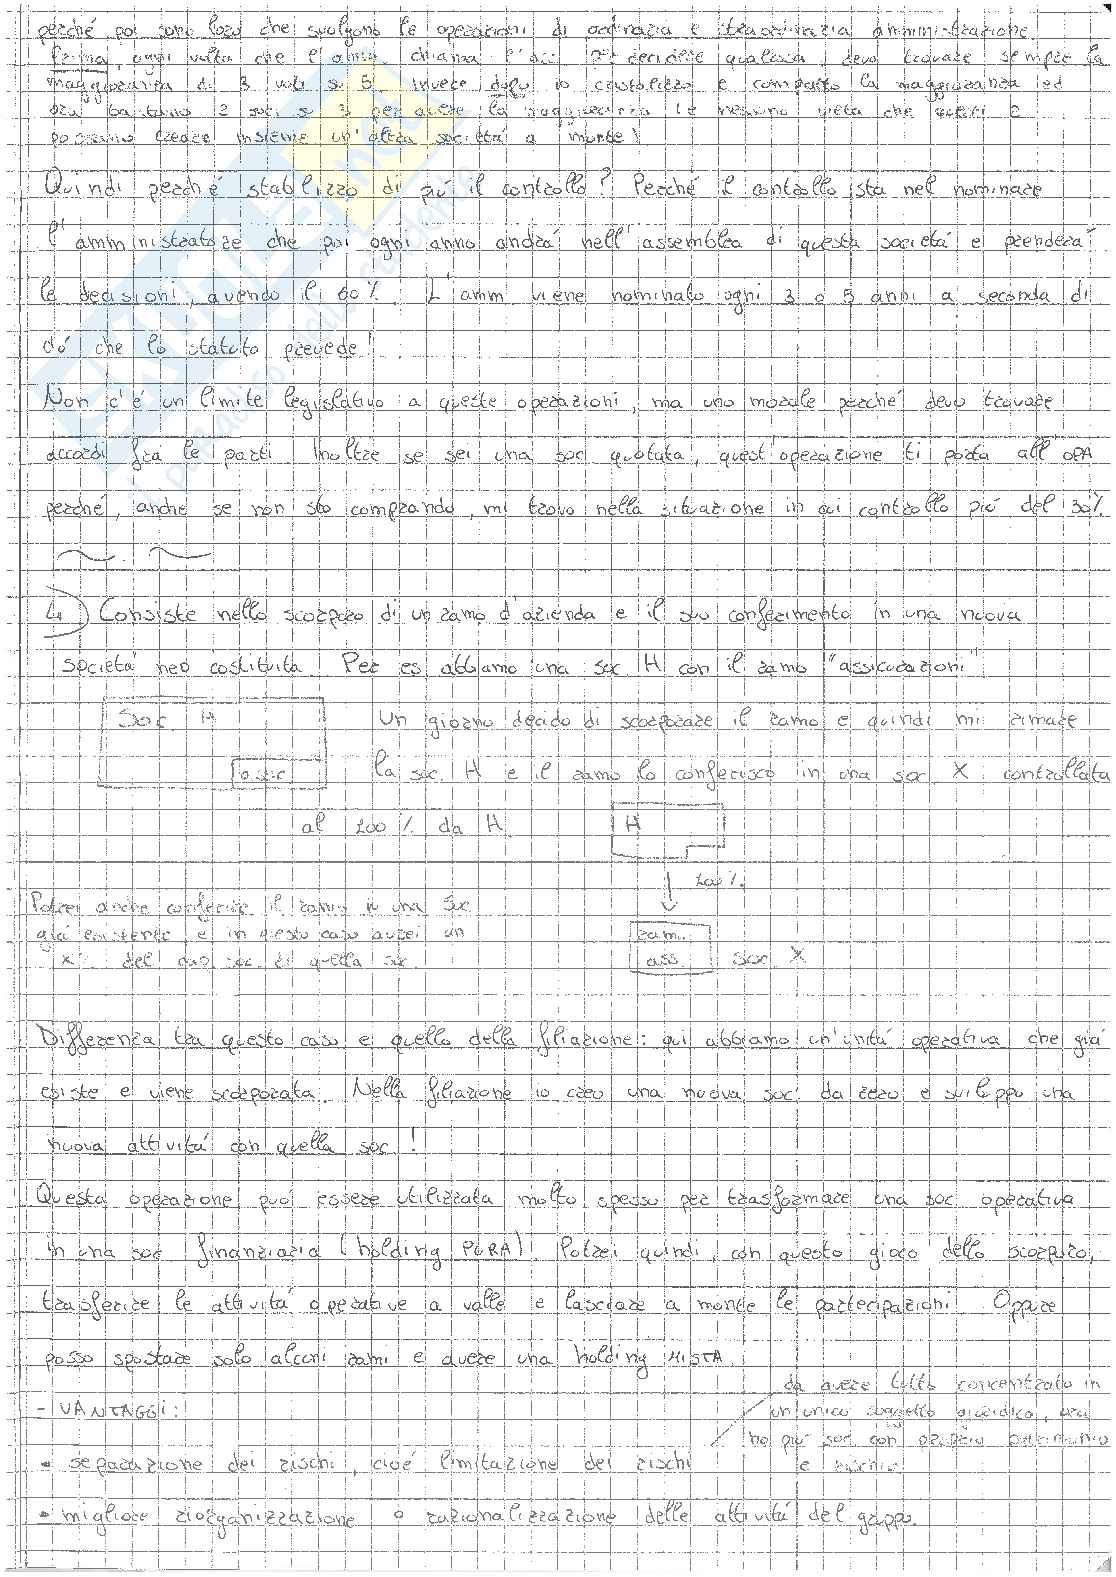 perché poi sono loro che svolgono le operazioni di ordinaria e straordinaria amministrazione.
Prima, ogni volta che l'amm chiama l'ass. per decidere qualcosa, devo trovare sempre la
maggioranza di 3 voti su 5. Invece dopo io cristallizzo e comporto la maggioranza ed
ora bastano 2 soci su 3 per avere la maggioranza (e nessuno vieta che questi 2
possano creare insieme un'altra societá a monte)
Quindi perché stabilizzo di piú il controllo? Perché il controllo sta nel nominare
l'amministratore che poi ogni anno andrá nell'assemblea di questa societá e prenderá
le decisioni, avendo il 60%. L'amm viene nominato ogni 3 o 5 anni a seconda di
ció che lo statuto prevede!
Non c'é un limite legislativo a queste operazioni, ma uno morale perché devo trovare
accordi fra le parti. Inoltre se sei una soc quotata, quest'operazione ti porta all'OPA
perché, anche se non sto comprando, mi trovo nella situazione in cui controllo piú del 30%.
4) Consiste nello scorporo di un ramo d'azienda e il suo conferimento in una nuova
societá neo costituita. Per es abbiamo una soc H con il ramo "assicurazioni"
Soc H
Un giorno decido di scorporare il ramo e quindi mi rimane
o.sic
la soc. H e il ramo lo conferisco in una soc. X controllata
al 100% da H.
H
100%
Potrei anche conferire il ramo in una soc
giá esistente, e in questo caso avrei un
X% del cap soc. di quella soc.
ram.
ass.
soc X
Differenza tra questo caso e quello della filiazione: qui abbiamo un'unitá operativa che giá
esiste e viene scorporata. Nella filiazione io creo una nuova soc. da zero e sviluppo una
nuova attivitá con quella soc!
Questa operazione puó essere utilizzata molto spesso per trasformare una soc operativa
in una soc finanziaria (holding PURA)! Potrei quindi, con questo gioco dello scorporo,
trasferire le attivitá operative a valle e lasciare a monte le partecipazioni. Oppure
posso spostare solo alcuni rami e avere una holding MISTA.
- VANTAGGI:
da avere tutto concentrato in
un unico soggetto giuridico, ora
ho piú soc. con proprio patrimonio
e rischio
• separazione dei rischi, cioé limitazione dei rischi
• migliore riorganizzazione o razionalizzazione delle attivitá del gruppo.